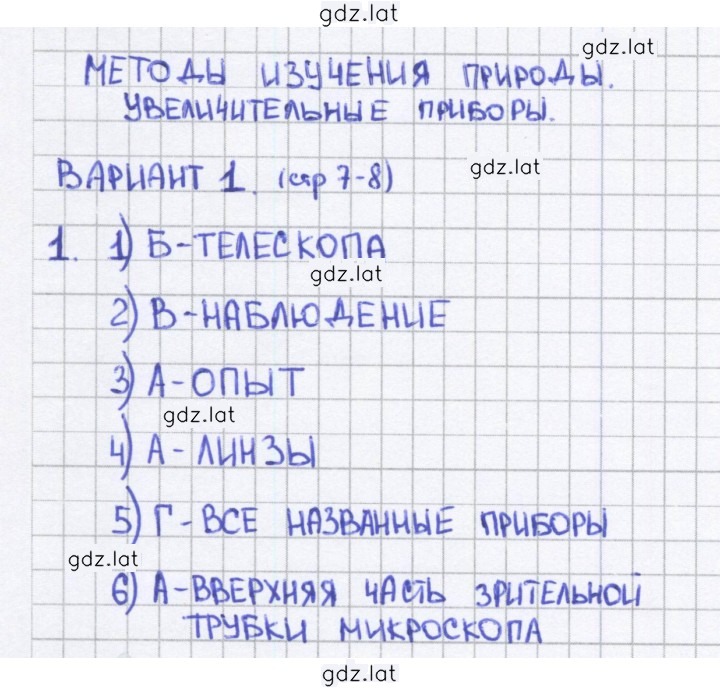 gdz.lat
gdz.lat
МЕТОДЫ ИЗУЧЕНИЯ ПРИРОДЫ.
УВЕЛИЧИТЕЛЬНЫЕ ПРИБОРЫ.
gdz.lat
ВАРИАНТ 1. (стр 7-8)
1. 1) Б-ТЕЛЕСКОПА
gdz.lat
2) В-НАБЛЮДЕНИЕ
3) А-ОПЫТ
gdz.lat
4) А-ЛИНЗЫ
5) Г-ВСЕ НАЗВАННЫЕ ПРИБОРЫ
gdz.lat
6) А-ВВЕРХНЯЯ ЧАСТЬ ЗРИТЕЛЬНОЙ
ТРУБКИ МИКРОСКОПА
gdz.lat